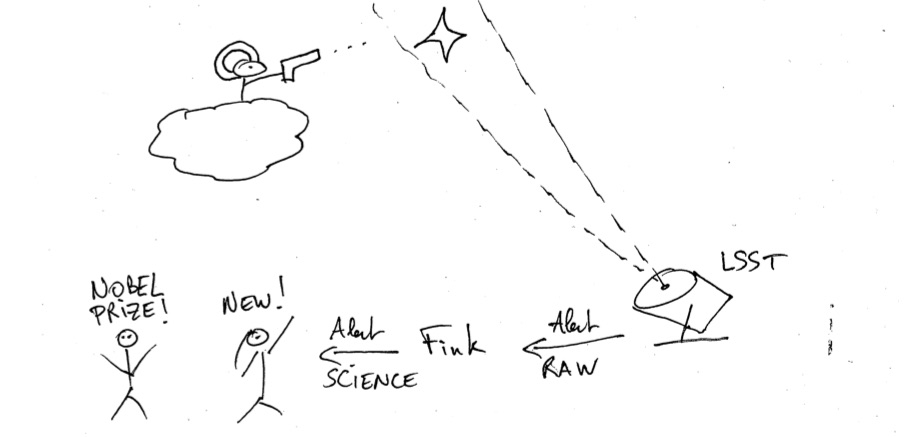 LSST
NOBEL
PRIZE!
NEW!
Alert
SCIENCE
Fink
Alert
RAW